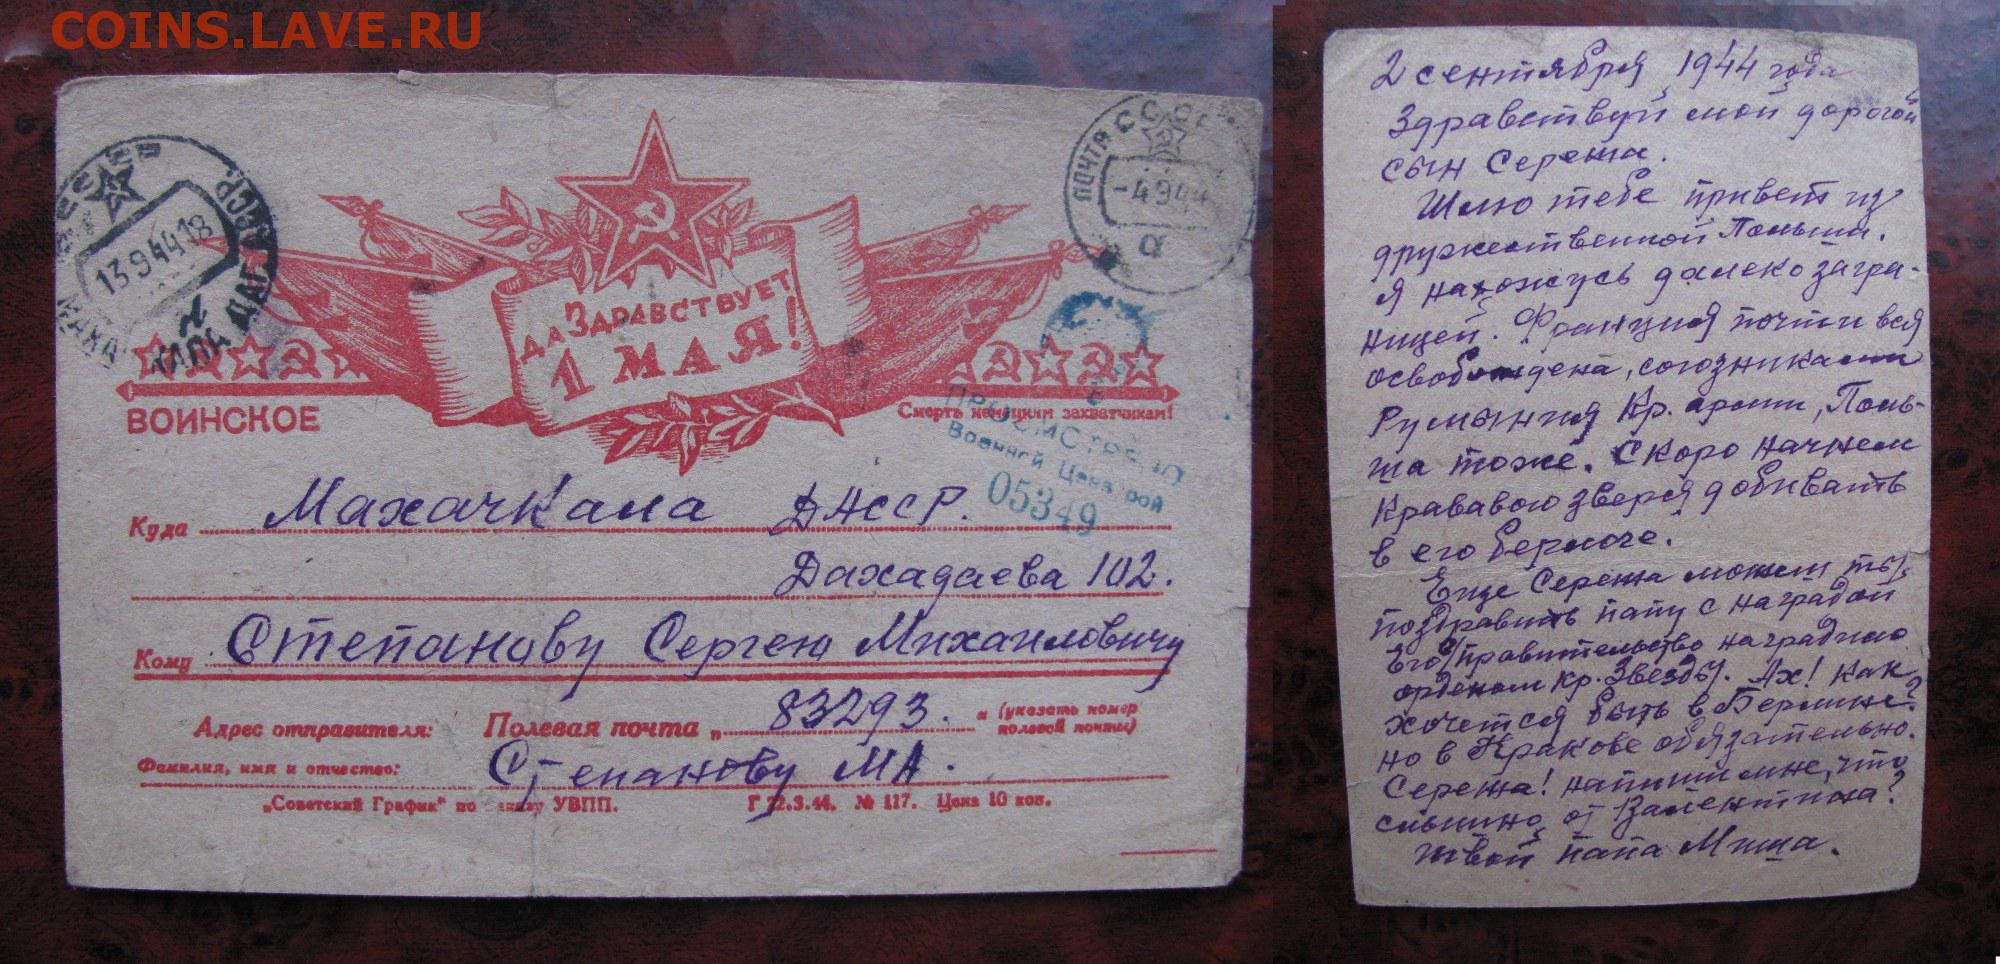 COINS.LAVE.RU
ПОЧТА СССР
-4944
а
13944 18
МАХАЧКАЛА ДАГ. АССР
ДА ЗДРАВСТВУЕТ
1 МАЯ!
ВОИНСКОЕ
Смерть немецким захватчикам!
ПРОСМОТРЕНО
Военной Цензурой
05349
Куда Махачкала ДАССР.
Дахадаева 102.
Кому Степанову Сергею Михаиловичу
Адрес отправителя: Полевая почта „ 83293. " (указать номер
полевой почты)
Фамилия, имя и отчество: Степанову МА.
„Советский График" по заказу УВПП. Г 22.3.44. № 117. Цена 10 коп.
2 сентября 1944 года
Здравствуй мой дорогой
сын Сережа.
Шлю тебе привет из
дружественной Польши.
Я нахожусь далеко загра-
ницей. Франция почти вся
освобождена, союзниками
Румыния Кр. арми, Поль-
ша тоже. Скоро начнем
Кравового зверя добивать
в его берлоге.
Еще Сережа можеш ты
поздравить папу с наградой
Его правительство наградило
орденом Кр. Звезды. Ах! Как
хочется быть в Берлине?
но в Кракове обязательно.
Сережа! напиши мне, что
слышно от Валентина?
твой папа Миша.